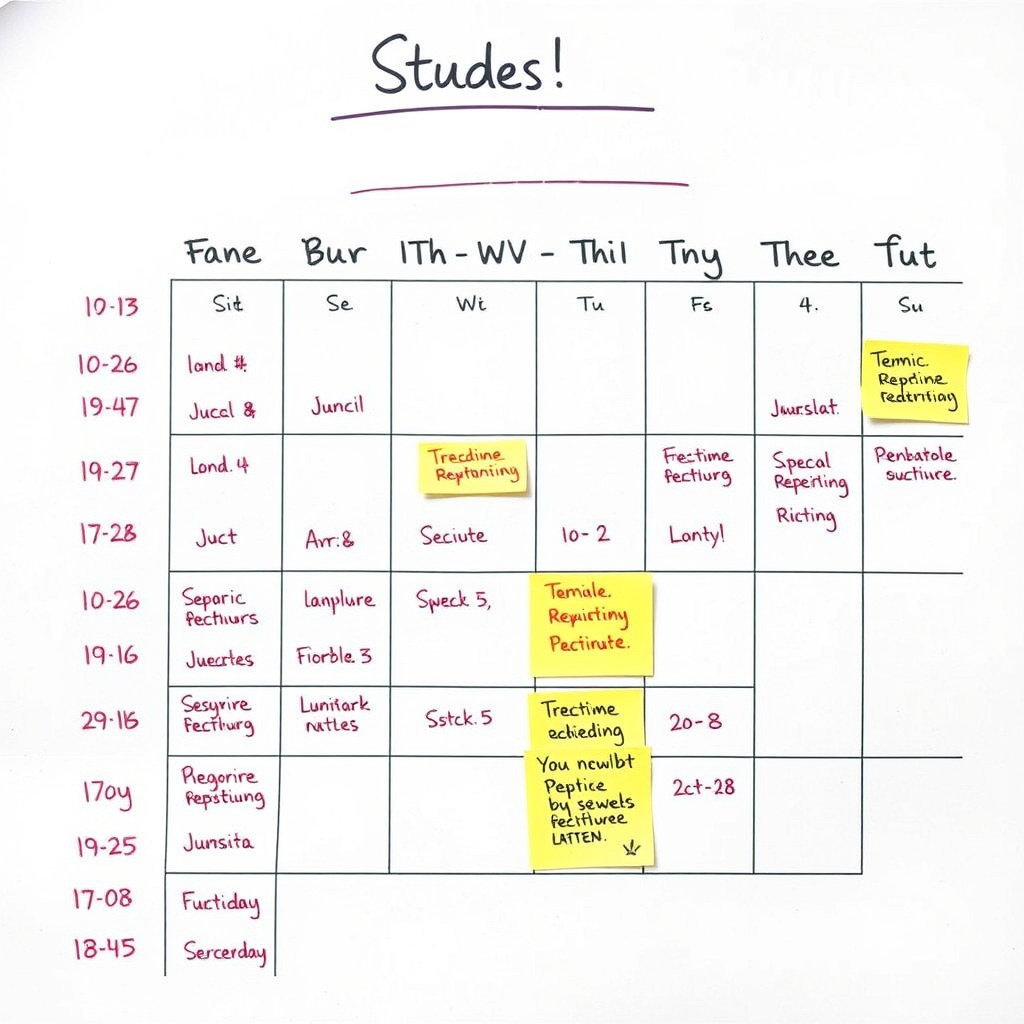 Studes!
Fane Bur 1Th - WV - Thil Tny Thee Tut
10-13 Sid Se Wi Tu Fs 4. Su
10-26 land #.
Temic.
Repdine
19-47 Jucal & Juncil Jaurslat.
19-27 Lond. 4
Trecdine
Reptaniing
Fectime
fectlurg
Specal
Repeirting
Ricting
Penbatole
suctiure.
17-28 Juct Arr:& Seciute 10-2 Lanty!
10-26 Separic
fecthurs
lanplure Speck 5,
Temale.
Requirtiny
Pectinute.
19-16 Juecrtes Fiorble. 3
29-16 Sesyrire
fecthurg
Luniiark
nuttles
Sstck. 5
Trectime
echieding
20-8
170y Pregorire
Repstiung
You newlbt
Peptice
by sewels
fectfluree
LATTEN.
2ct-28
19-25 Junsita
17-08 Fuctiday
18-45 Sercerday